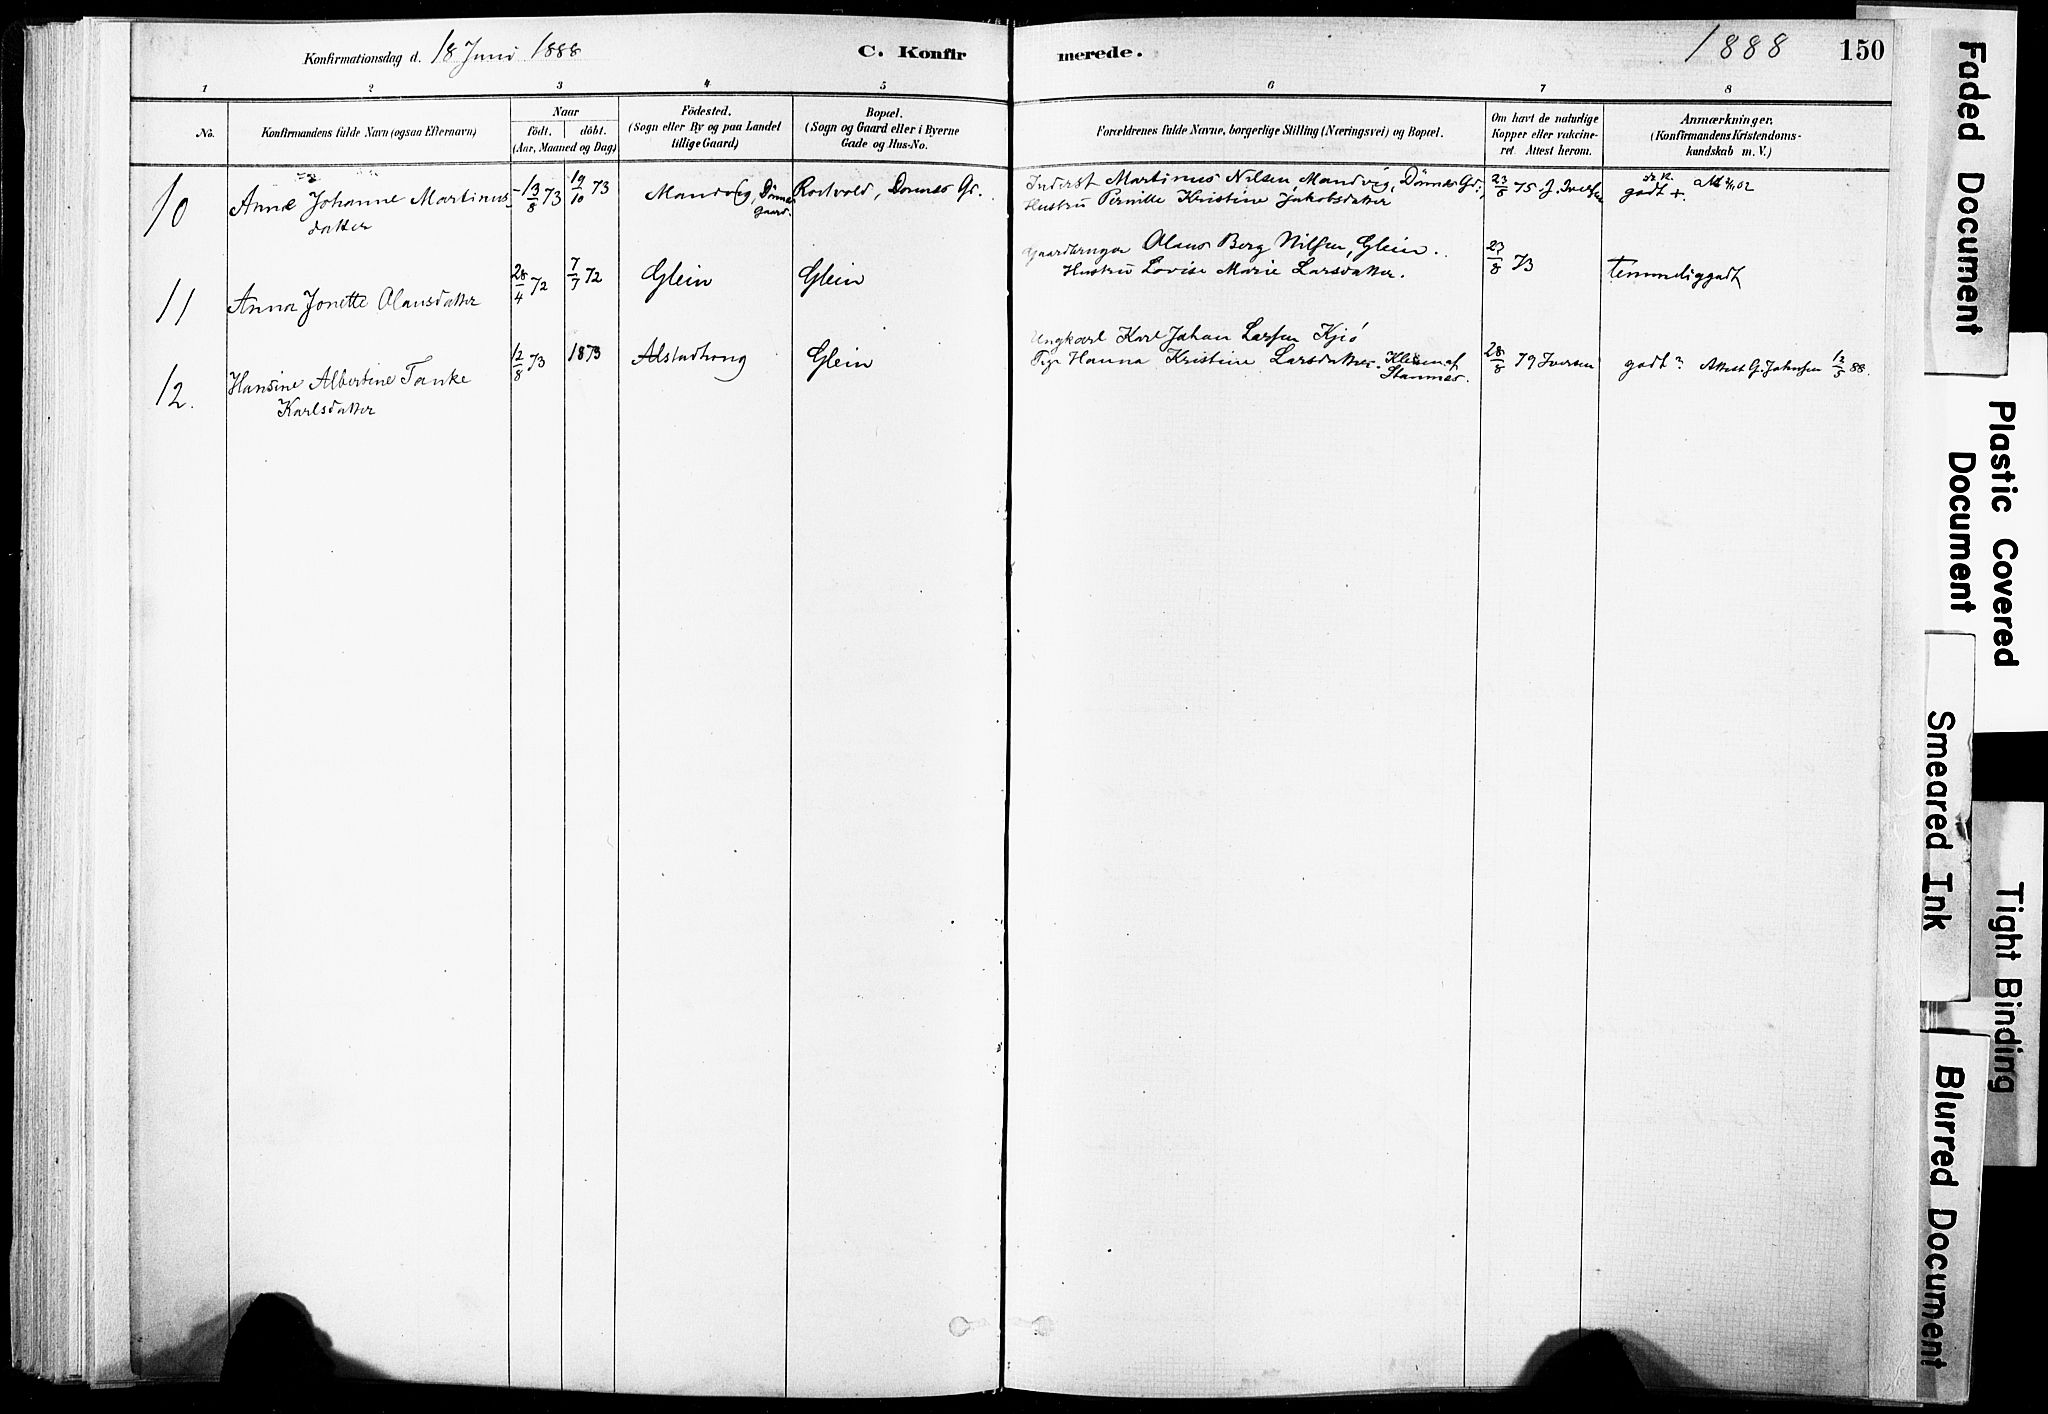 Konfirmationsdag d. 18 Juni 1888 C. Konfirmerede. 1888 150
1 2 3 4 5 6 7 8
No. Konfirmandens fulde Navn (ogsaa Efternavn) Naar födt. döbt. (Aar, Maaned og Dag) Födested. (Sogn eller By og paa Landet tillige Gaard) Bopæl. (Sogn og Gaard eller i Byerne Gade og Hus-No. Forældrenes fulde Navne, borgerlige Stilling (Næringsvei) og Bopæl. Om havt de naturlige Kopper eller vakcineret. Attest herom. Anmærkninger. (Konfirmandens Kristendomskundskab m. V.)
10 Anne Johanne Martinusdatter 13/8 73 19/10 73 Mandvig, Dönnesgaard. Rostvold, Dönnes Gd. Inderst Martinus Nilsen Mandvig, Dönnes Gd.,
Hustru Pernille Kristine Jakobsdatter 23/8 75 J. Iversen godt +.
11 Anna Jonette Olausdatter 28/4 72 7/7 72 Glein Glein Gaardbruger Olaus Berg Nilsen, Glein.
Hustru Lovise Marie Larsdatter. 23/8 73 temmelig godt
12. Hansine Albertine Tanke
Karlsdatter 12/8 73 1873 Alstadhoug Glein Ungkarl Karl Johan Larsen Kjiö
Pige Hanna Kristine Larsdatter. Stamnes. 28/8 79 Iversen godt? Attest G. Johnsen 12/5 88.
Faded Document
Plastic Covered Document
Smeared Ink
Tight Binding
Blurred Document